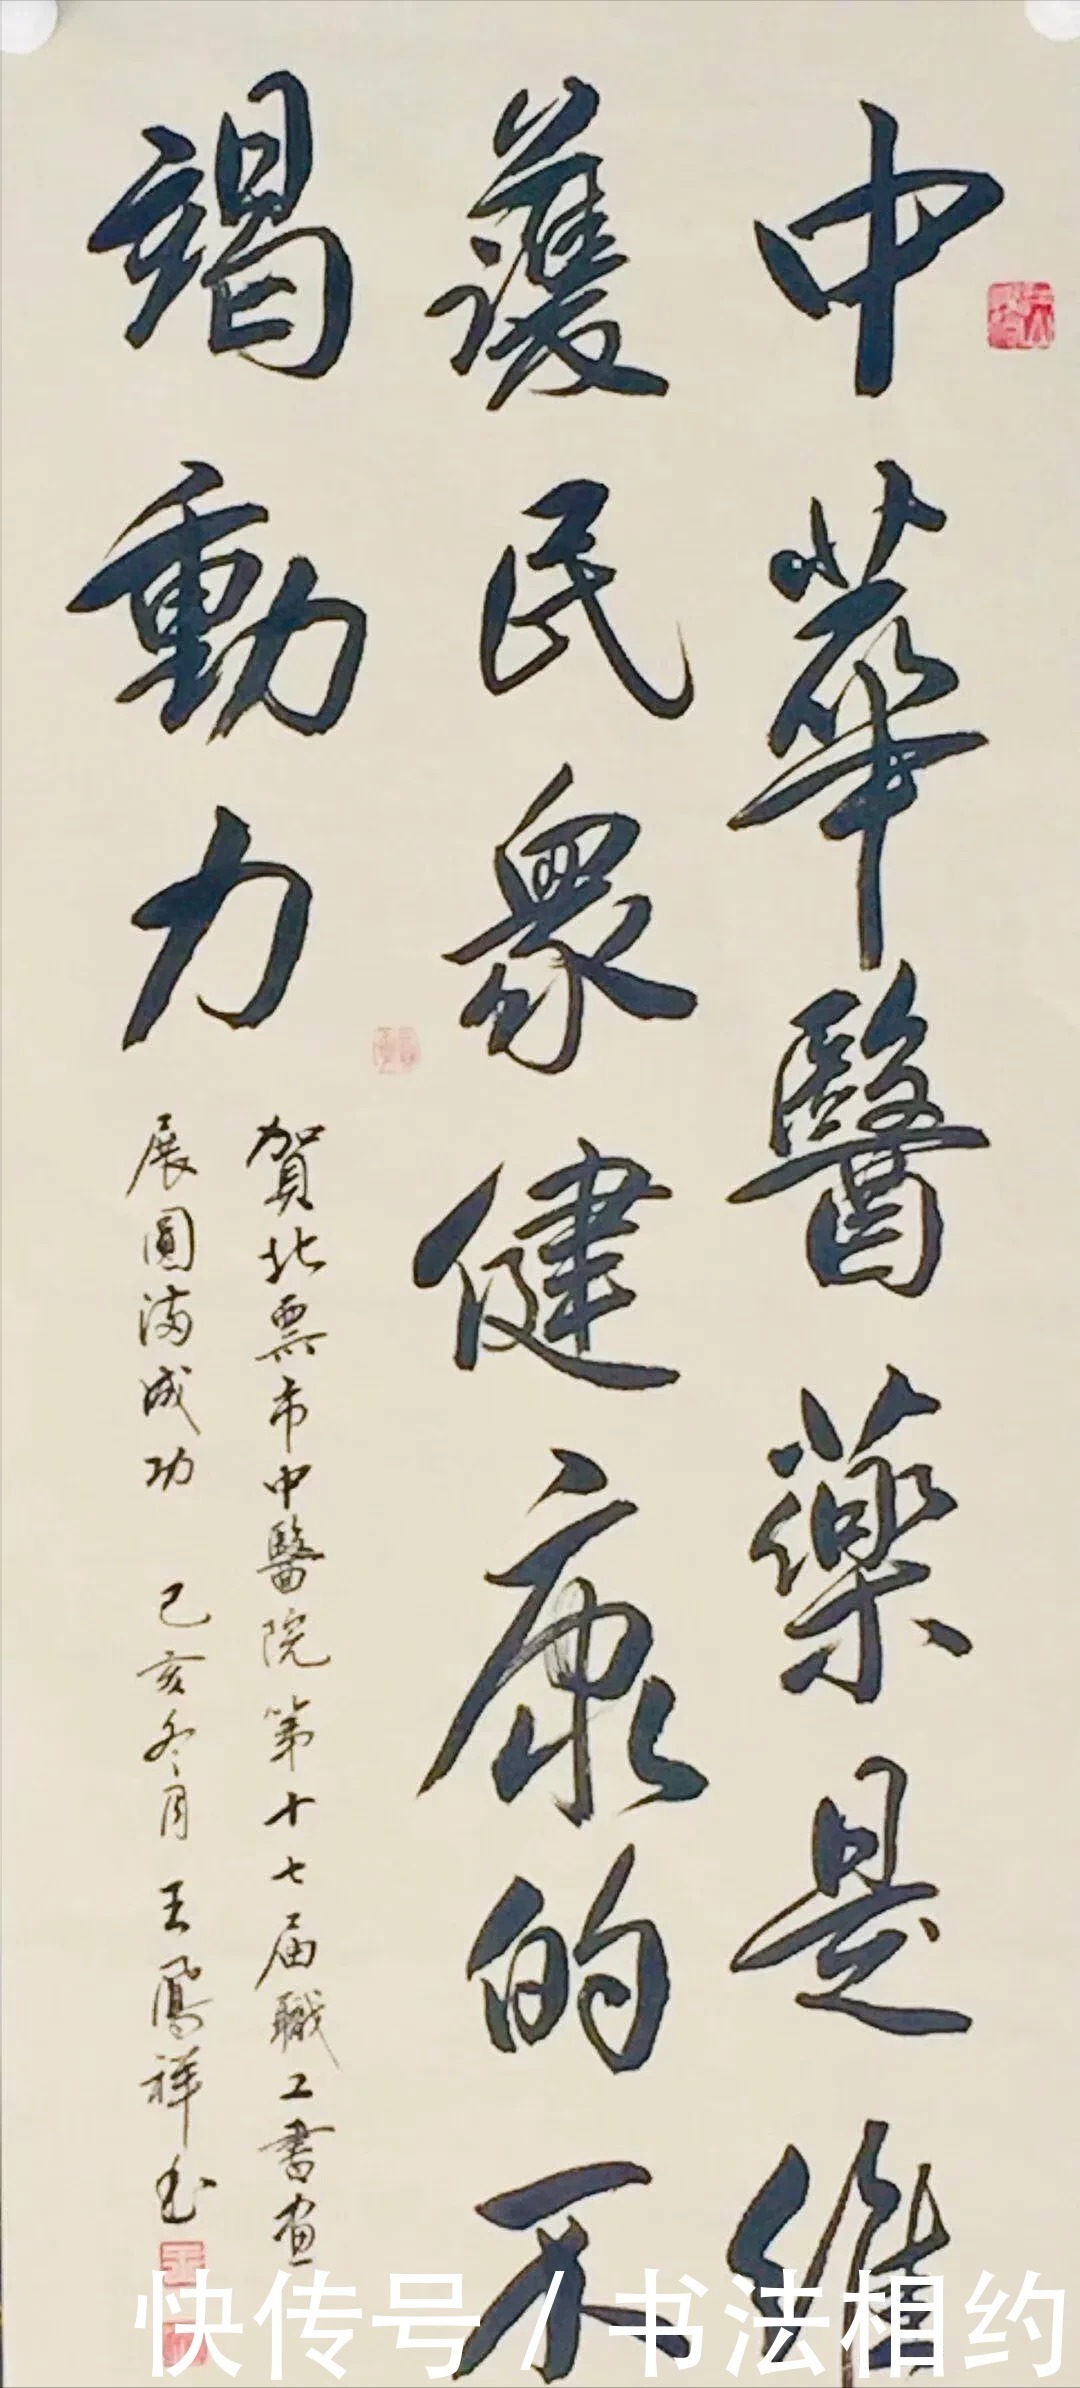 中華醫藥是維
護民衆健康的不
竭動力
賀北票市中醫院第十七届職工書画
展圓滿成功 己亥冬月 王鳳祥书
快传号 / 书法相约